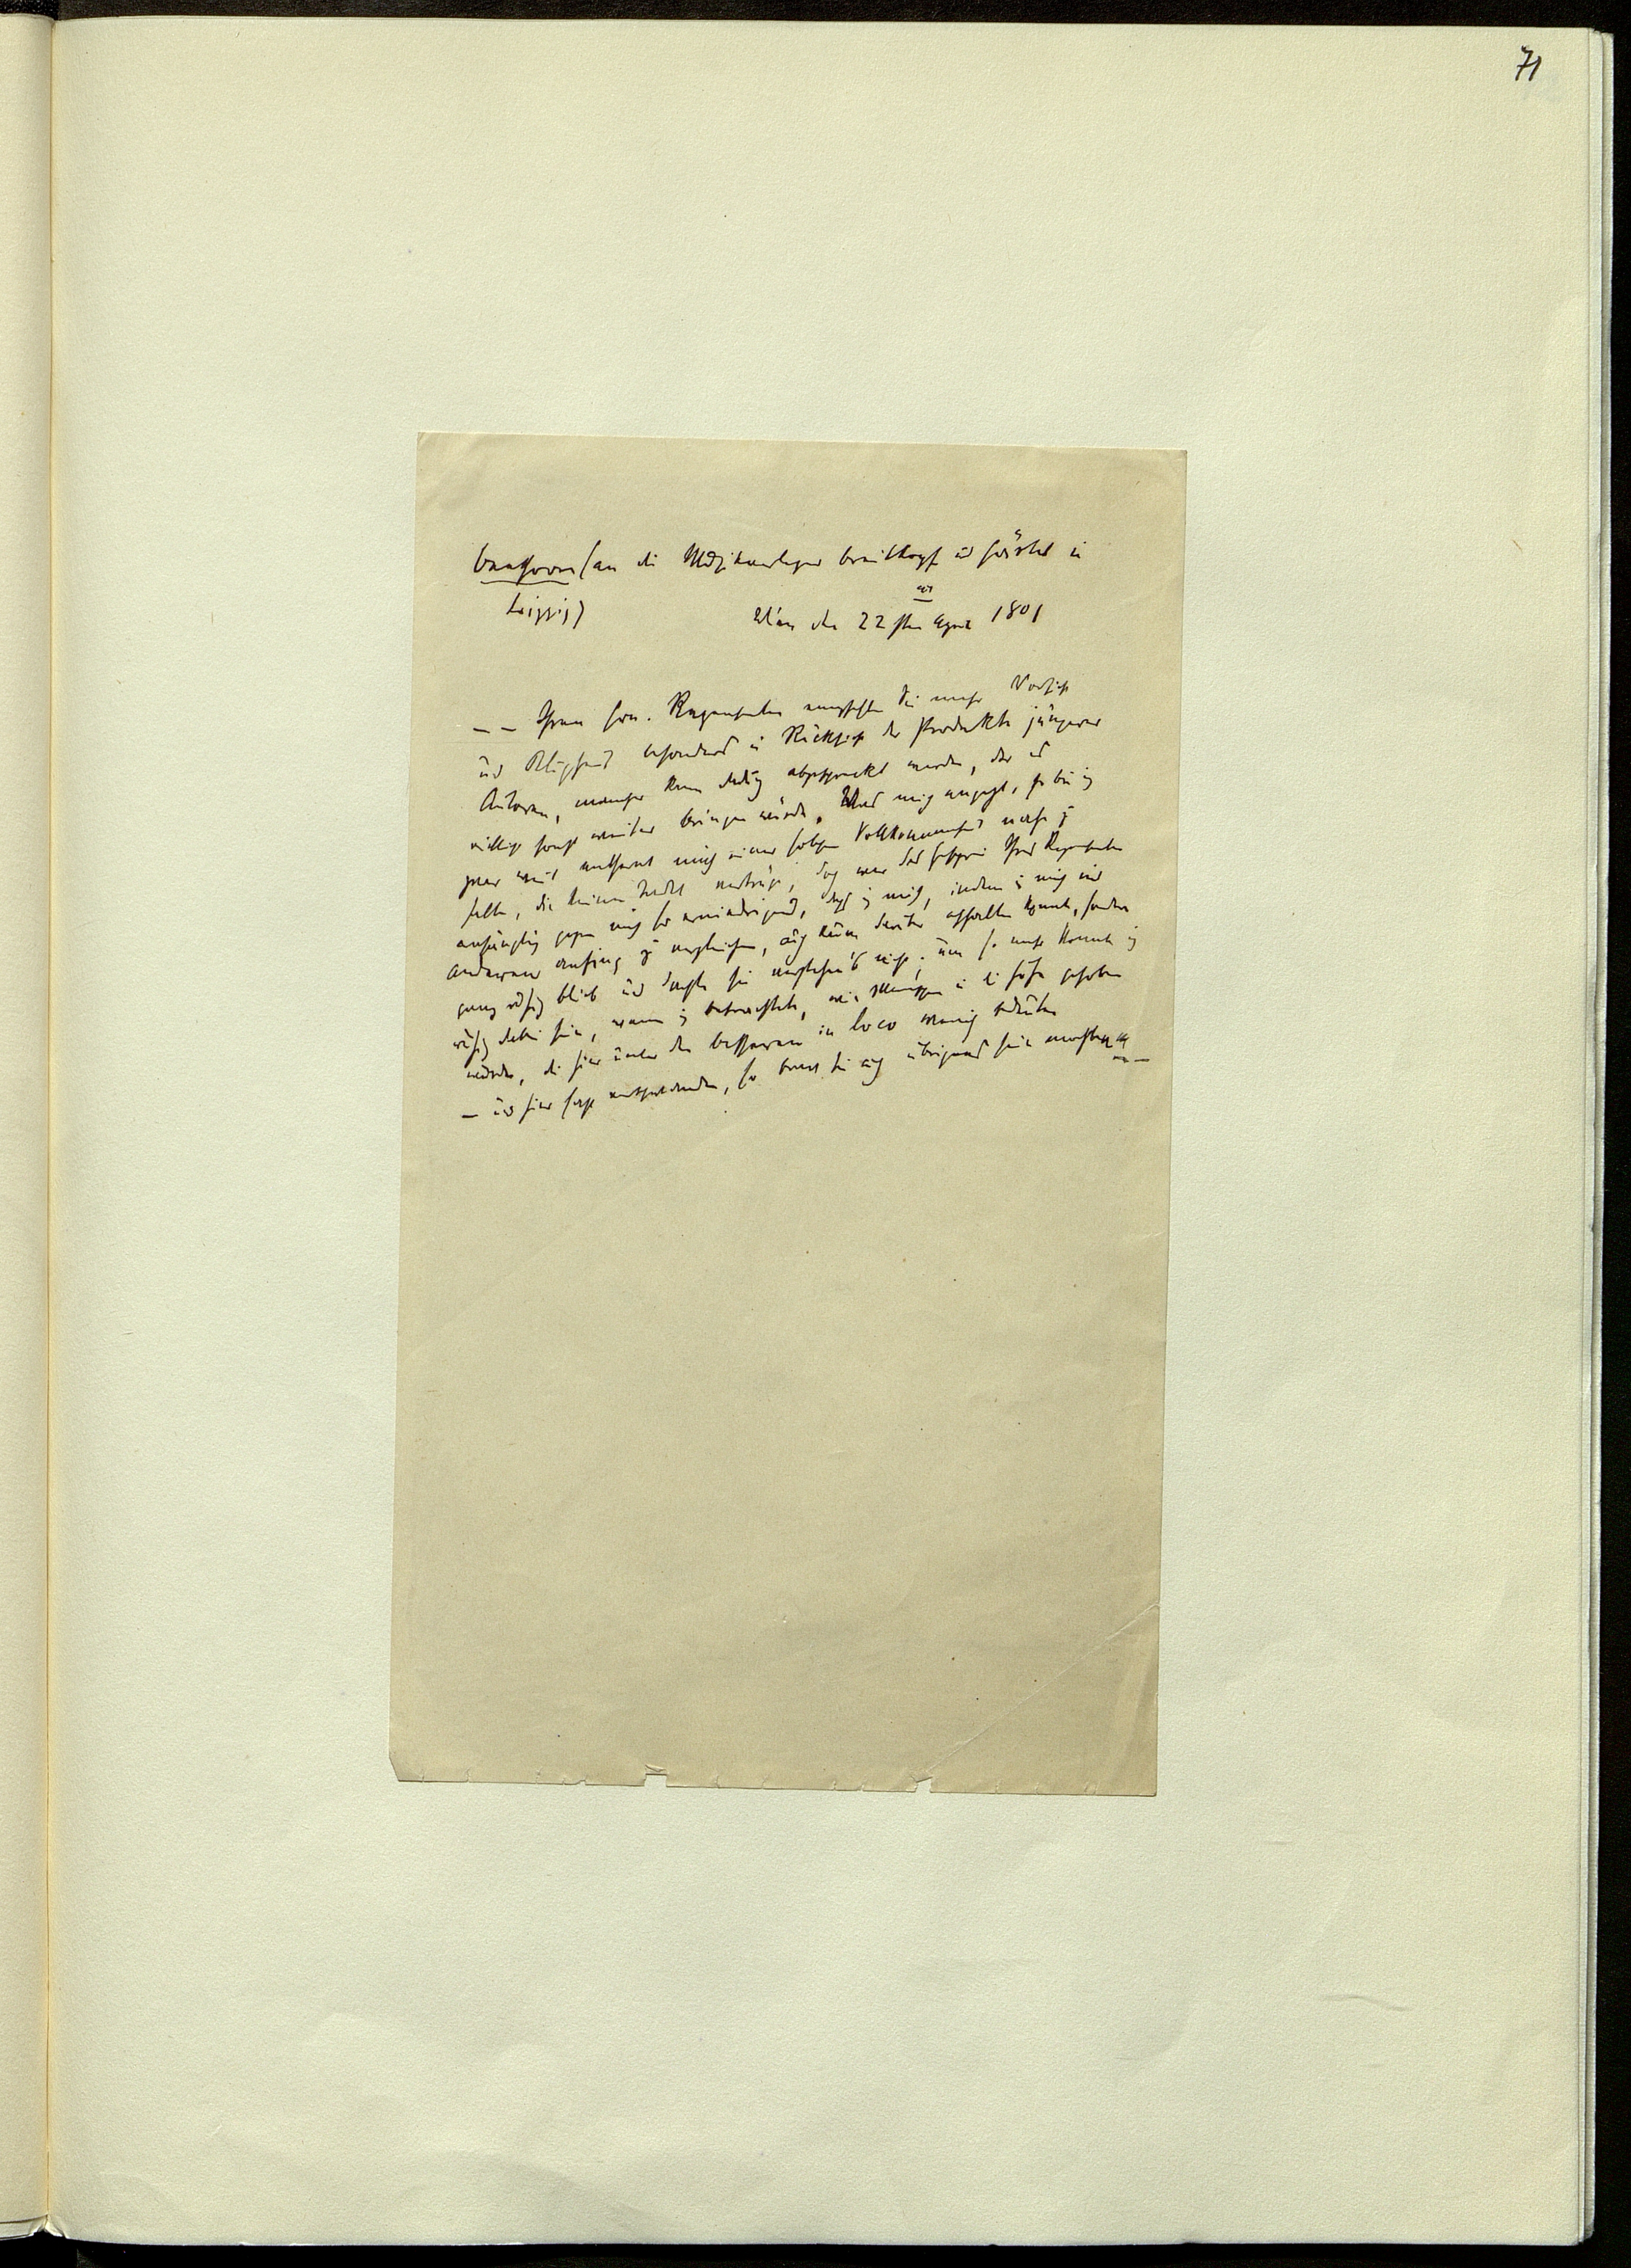 71
Beethoven (an die Musikverleger Breitkopf u Härtel in
Leipzig)
Wien den 22sten April 1801
— — Ihren Hrn. Rezensenten empfehlen Sie mehr Vorsicht
und Klugheit besonders in Rücksicht der Produkte jüngerer
Autoren, mancher kann dadurch abgeschreckt werden, der es
vielleicht sonst weiter bringen würde, Was mich angeht, so bin ich
zwar weit entfernt mich einer solchen Vollkommenheit nahe zu
halten, die keinen Tadel vertrüge, doch war das Geschrei Ihres Rezensenten
anfänglich gegen mich so erniedrigend, daß ich mich, indem ich mich mit
anderen anfing zu vergleichen, auch kaum darüber aufhalten konnte, sondern
ganz ruhig blieb und dachte sie verstehen's nicht; um so mehr konnte ich
ruhig dabei sein, wenn ich betrachtete, wie Menschen in die Höhe gehoben
wurden, die hier unter den besseren in loco wenig bedeuten
— und hier fast verschwanden, so brav sie auch übrigens sein mochten" — —